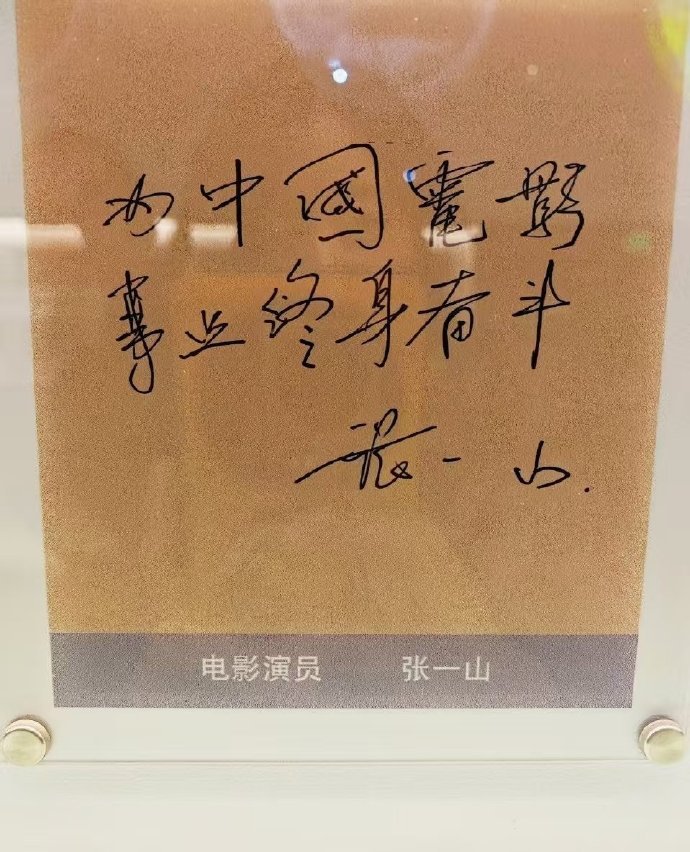 为中國電影
事业终身奋斗
张一山.
电影演员 张一山